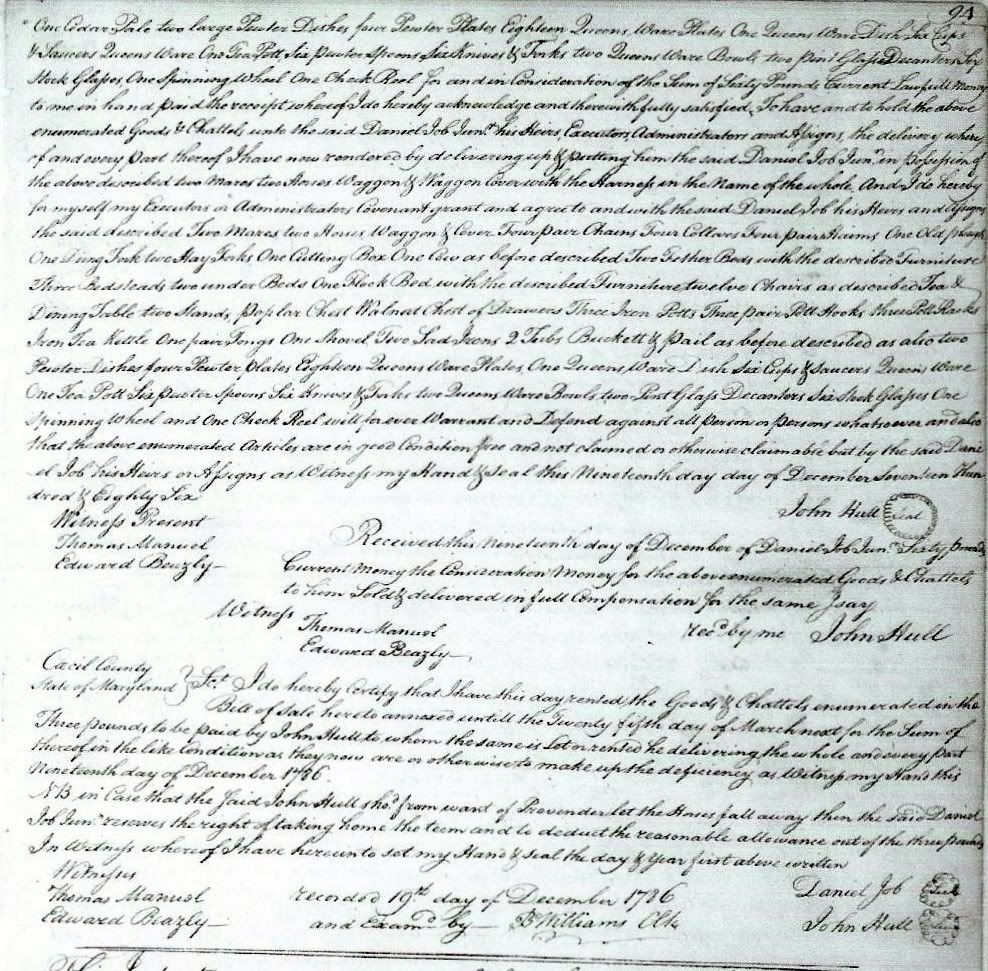 94
One Cedar Pale two large Pewter Dishes four Pewter Plates Eighteen Queens Ware Plates One Queens Ware Dish Six Cups
& Saucers Queens Ware One Tea Pott, Six pewter Spoons Six Knives & Forks two Queens Ware Bowls two pint Glass Decanters Six
Glasses, One Spinning Wheel One Check Reel for and in Consideration of the Sum of Sixty Pounds Current Lawfull Money
to me in hand paid the receipt whereof I do hereby acknowledge and therewith fully satisfied, To have and to hold the above
enumerated Goods & Chattels unto the said Daniel Job Junr. his Heirs, Executors, Administrators and Assigns, the delivery where
of and every part thereof I have now rendered by delivering up & putting him the said Daniel Job Junr. in possession of
the above described two Mares two Horses Waggon & Waggon Cover with the Harness in the Name of the whole, And I do hereby
for myself my Executors or Administrators Covenant grant and agree to and with the said Daniel Job his Heirs and Assigns
the said described Two Mares two Horses Waggon & Cover Four pair Chains Four Collars Four pair Haims One Old plough
One Dung Fork two Hay Forks One Cutting Box One Cow as before described Two Fether Beds with the described Furniture
Three Bedsteads two under Beds One Flock Bed with the described Furniture twelve Chairs as described Tea &
Dining Table two Stands, poplar Chest Walnut Chest of Drawers Three Iron Potts Three pair Pott Hooks three Pott Racks
Iron Tea Kettle One pair Tongs One Shovel Two Sad Irons 2 Tubs Buckett & pail as before described as also two
Pewter Dishes four Pewter plates Eighteen Queens Ware Plates, One Queens Ware Dish Six Cups & Saucers Queens Ware
One Tea Pott Six pewter Spoons Six Knives & Forks two Queens Ware Bowls two Pint Glass Decanters Six Glasses One
Spinning Wheel and One Check Reel will for ever Warrant and Defend against all person or persons whatsoever and also
that the above enumerated Articles are in good Condition free and not claimed or otherwise claimable but by the said Dani
el Job his Heirs or Assigns as Witness my Hand & Seal this Nineteenth day day of December Seventeen Hun
dred & Eighty Six
John Hull Seal
Witness Present
Thomas Manuel
Edward Beazly
Received this Nineteenth day of December of Daniel Job Junr. Sixty pounds
Current Money the Consideration Money for the above enumerated Goods & Chattels
to him Sold & delivered in full Compensation for the same I say
Witness
Thomas Manuel
Edward Beazly
recd. by me John Hull
Cæcil County
State of Maryland } Sct. I do hereby Certify that I have this day rented the Goods & Chattels enumerated in the
Bill of Sale hereto annexed untill the Twenty fifth day of March next for the Sum of
Three pounds to be paid by John Hull to whom the same is Let n rented he delivering the whole and every part
thereof in the like Condition as they now are or otherwise to make up the deficiency as Witness my Hand this
Nineteenth day of December 1786.
NB in Case that the said John Hull shod. from want of Provender let the Horses fall away then the said Daniel
Job Junr. reserves the right of taking home the teem and to deduct the reasonable allowance out of the three pounds
In Witness whereof I have hereunto set my Hand & Seal the day & Year first above written
Witnesses
Thomas Manuel
Edward Beazly
recorded 19th day of December 1786
and Examd. by Williams Clk
Daniel Job Seal
John Hull Seal